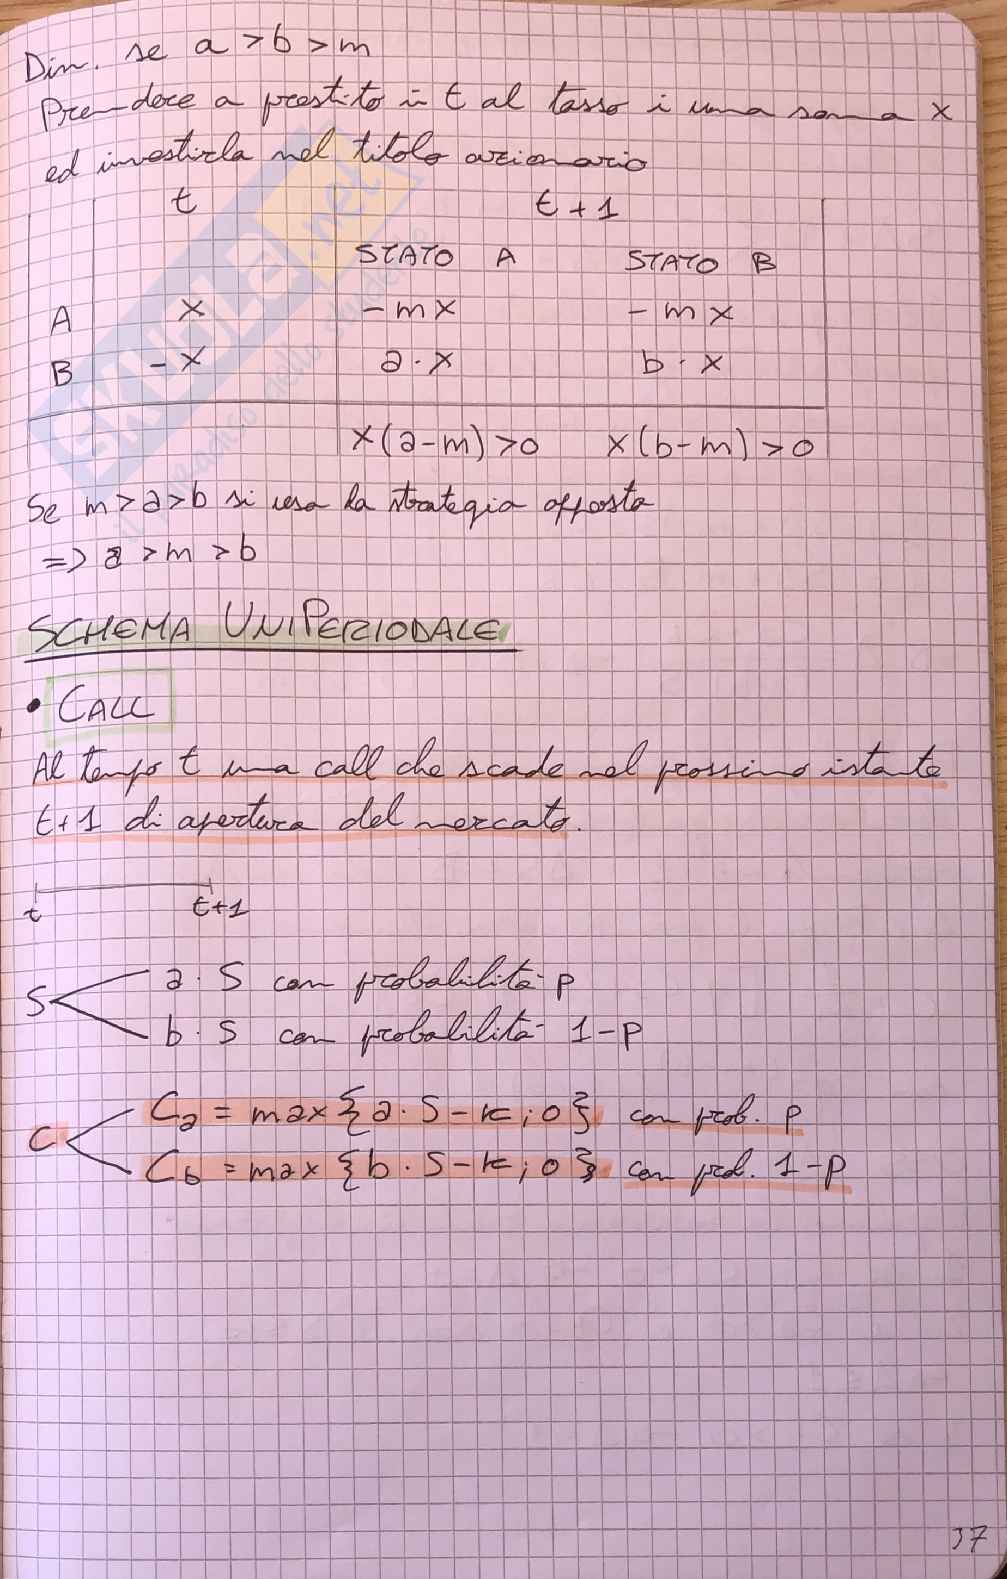 Dim. se a > b > m
Prendere a prestito in t al tasso i una somma x
ed investirla nel titolo azionario
t t+1
STATO A STATO B
A x -mx -mx
B -x a·x b·x
x(a-m)>0 x(b-m)>0
Se m>a>b si usa la strategia opposta
=> a>m>b
SCHEMA UNIPERIODALE
• CALL
Al tempo t una call che scade nel prossimo istante
t+1 di apertura del mercato.
t t+1
S a·S con probabilità p
b·S con probabilità 1-p
C Ca = max {a·S-k;0} con prob. p
Cb = max {b·S-k;0} con prob. 1-p
37
SKUOLA.net
il paradiso dello studente